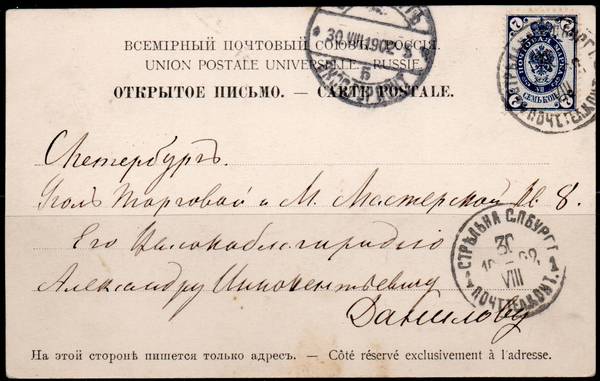 ВСЕМІРНЫЙ ПОЧТОВЫЙ СОЮЗЪ. РОССІЯ.
UNION POSTALE UNIVERSELLE. RUSSIE.
ОТКРЫТОЕ ПИСЬМО. — CARTE POSTALE.
30.VIII.1902
Б
7 7
СЕМЬ КОП.
С.Петербургъ.
Уголъ Торговой и М. Мастерской № 8.
Его Высокоблагородію
Александру Иннокентьевичу
Данилову
СТРѢЛЬНА С.П.БУРГ. Г.
30
VIII
ПОЧТ.ТЕЛ.КОНТ.
На этой сторонѣ пишется только адресъ. — Côté réservé exclusivement à l'adresse.